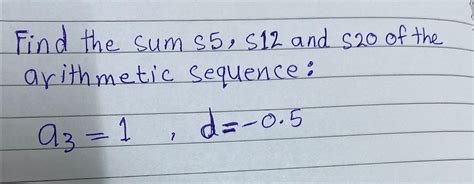 Find the sum s5, s12 and s20 of the
arithmetic sequence:
a₃ = 1 , d=-0.5